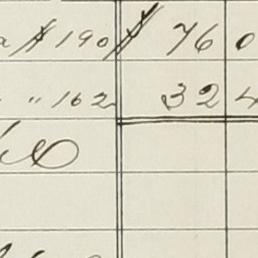 a $ 190 $ 76 0
" 162 32 4